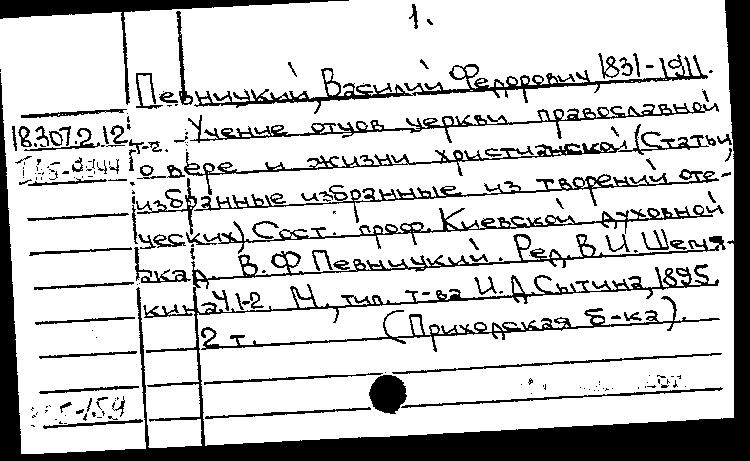 1.
Певницкий, Василий Федорович, 1831-1911.
18.307.2.12 т-2. - Учение отцов церкви православной
о вере и жизни христианской (Статьи,
избранные избранные из творений оте-
ческих). Сост. проф. Киевской духовной
акад. В.Ф. Певницкий. Ред. В.И. Шемя-
кина. Ч.1-2. М., тип. т-ва И.Д. Сытина, 1895.
2 т. (Приходская б-ка).